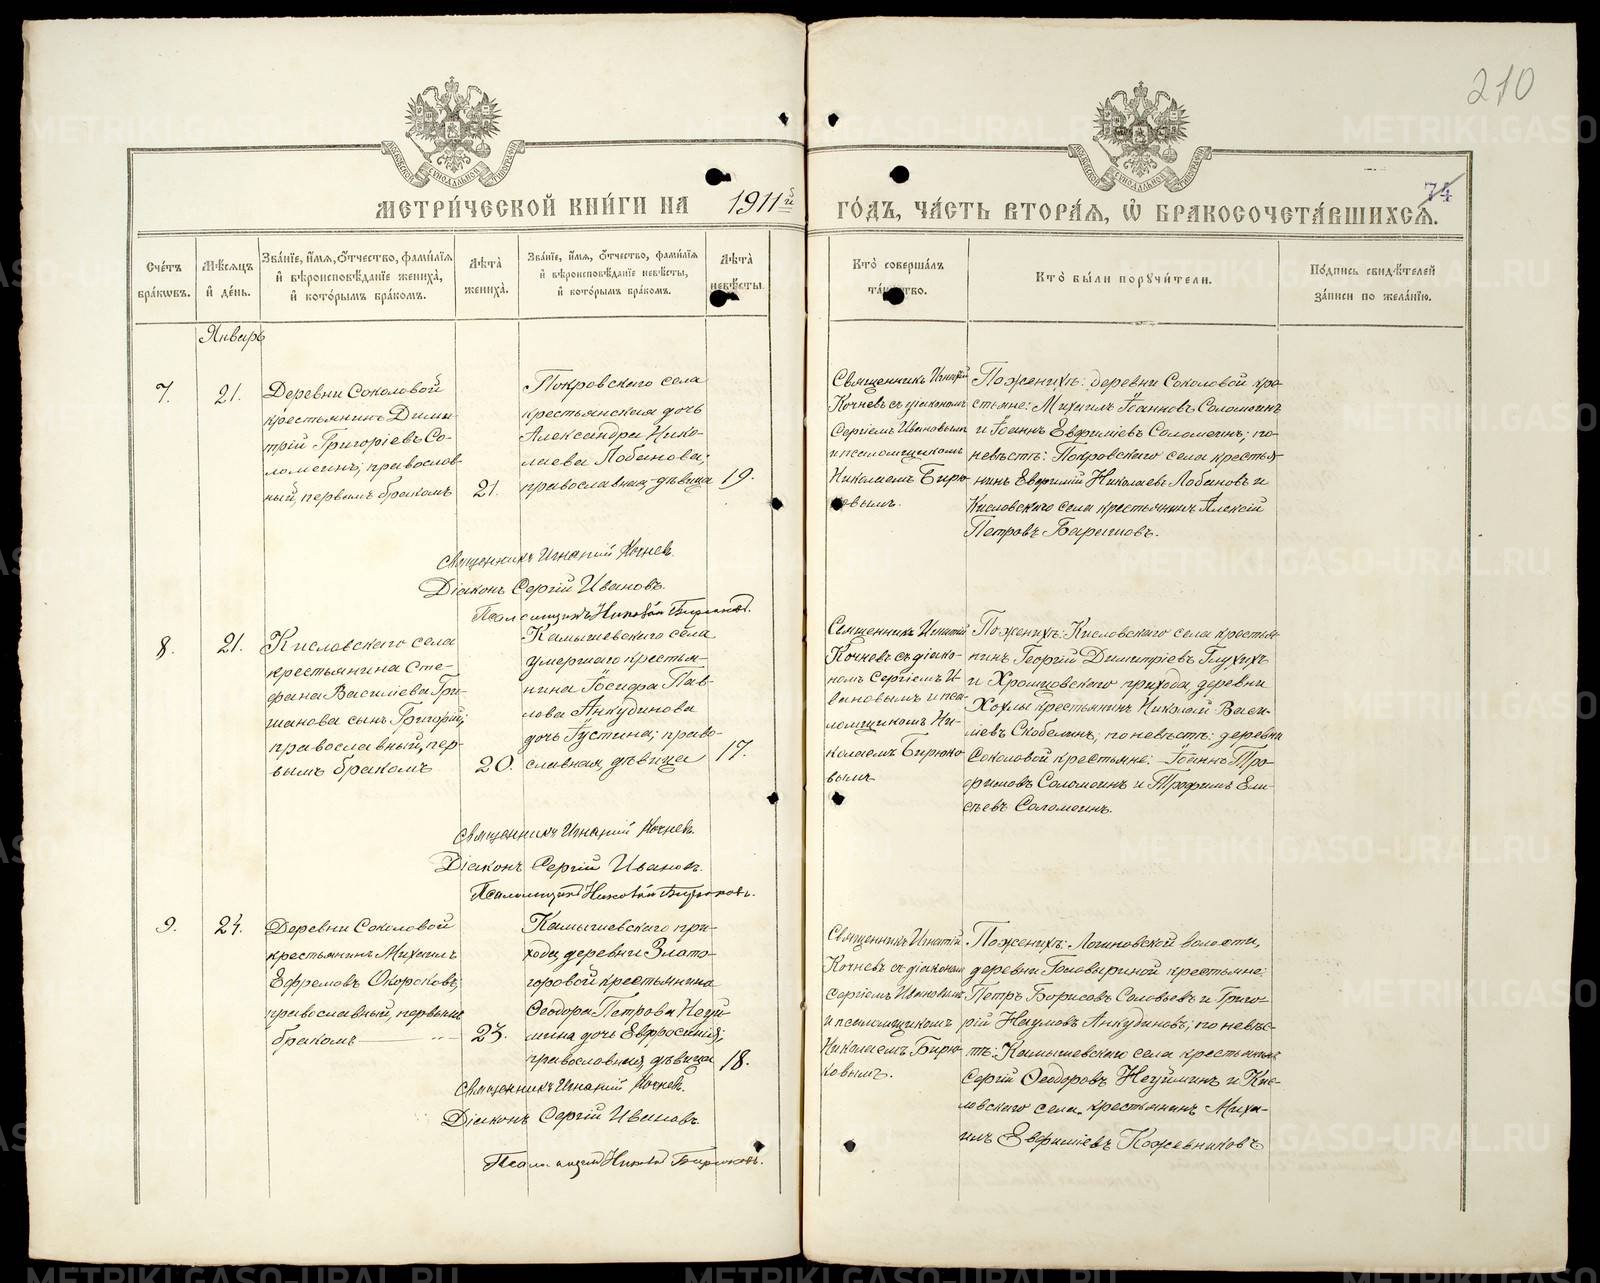 210
74
МЕТРИ́ЧЕСКОЙ КНИ́ГИ НА 1911й ГО́ДЪ, ЧА́СТЬ ВТОРА́Я, Ѡ БРАКОСОЧЕТА́ВШИХСЯ.
Сче́тъ бра́ковъ.
Мѣ́сяцъ и҆ де́нь.
Зва́нїе, и҆́мя, ѻ҆́тчество, фами́лїя и҆ вѣроисповѣ́данїе жениха̀, и҆ кото́рымъ бра́комъ.
Лѣ́та жениха̀.
Зва́нїе, и҆́мя, ѻ҆́тчество, фами́лїя и҆ вѣроисповѣ́данїе невѣ́сты, и҆ кото́рымъ бра́комъ.
Лѣ́та невѣ́сты.
Кто̀ соверша́лъ та́инство.
Кто̀ бы́ли поручи́тели.
По́дпись свидѣ́телей за́писи по жела́нїю.
Январь
7.
21.
Деревни Соколовой
крестьянинъ Дими-
трій Григоріевъ Со-
ломеинъ; православ-
ный, первымъ бракомъ
21.
Покровскаго села
крестьянская дочь
Александра Нико-
лаева Лобанова;
православная, дѣвица
19.
Священникъ Игнатій
Кочневъ съ діакономъ
Сергіемъ Ивановымъ
и псаломщикомъ
Николаемъ Бирю-
ковымъ.
По женихѣ: деревни Соколовой кре-
стьяне: Михаилъ Іоанновъ Соломеинъ
и Іоаннъ Евфиміевъ Соломеинъ; по
невѣстѣ: Покровскаго села крестья-
нинъ Евфимій Николаевъ Лобановъ и
Кисловскаго села крестьянинъ Алексій
Петровъ Барышовъ.
Священникъ Игнатій Кочнев.
Діаконъ Сергій Ивановъ.
Псаломщикъ Николай Бирюков.
8.
21.
Кисловскаго села
крестьянина Сте-
фана Василіева Гри-
шанова сынъ Григорій;
православный, пер-
вымъ бракомъ
20.
Камышевскаго села
умершаго крестья-
нина Іосифа Пав-
лова Анкудинова
дочь Іустина; право-
славная, дѣвица
17.
Священникъ Игнатій
Кочневъ съ діако-
номъ Сергіемъ И-
вановымъ и пса-
ломщикомъ Ни-
колаемъ Бирюко-
вымъ
По женихѣ: Кисловскаго села крестья-
нинъ Георгій Димитріевъ Глухихъ
и Хромцовскаго прихода деревни
Хохлы крестьянинъ Николай Васи-
ліевъ Скобелинъ; по невѣстѣ: деревни
Соколовой крестьяне: Іоаннъ Тро-
фимовъ Соломеинъ и Трофимъ Ели-
сѣевъ Соломеинъ.
Священникъ Игнатій Кочнев.
Діаконъ Сергій Ивановъ.
Псаломщикъ Николай Бирюковъ.
9.
24.
Деревни Соколовой
крестьянинъ Михаилъ
Ефремовъ Окороковъ;
православный, первымъ
бракомъ
23.
Камышевскаго при-
хода, деревни Злато-
горовой крестьянина
Ѳеодора Петрова Неуй-
мина дочь Евфросинія;
православная, дѣвица
18.
Священникъ Игнатій
Кочневъ съ діакономъ
Сергіемъ Ивановымъ
и псаломщикомъ
Николаемъ Бирю-
ковымъ.
По женихѣ: Логиновской волости,
деревни Головыриной крестьяне:
Петръ Борисовъ Соловьевъ и Григо-
рій Наумовъ Анкудиновъ; по невѣс-
тѣ: Камышевскаго села крестьянинъ
Сергій Ѳеодоровъ Неуйминъ и Кис-
ловскаго села крестьянинъ Миха-
илъ Евфиміевъ Кожевниковъ
Священникъ Игнатій Кочнев.
Діаконъ Сергій Ивановъ.
Псаломщикъ Николай Бирюковъ.
METRIKI.GASO-URAL.RU